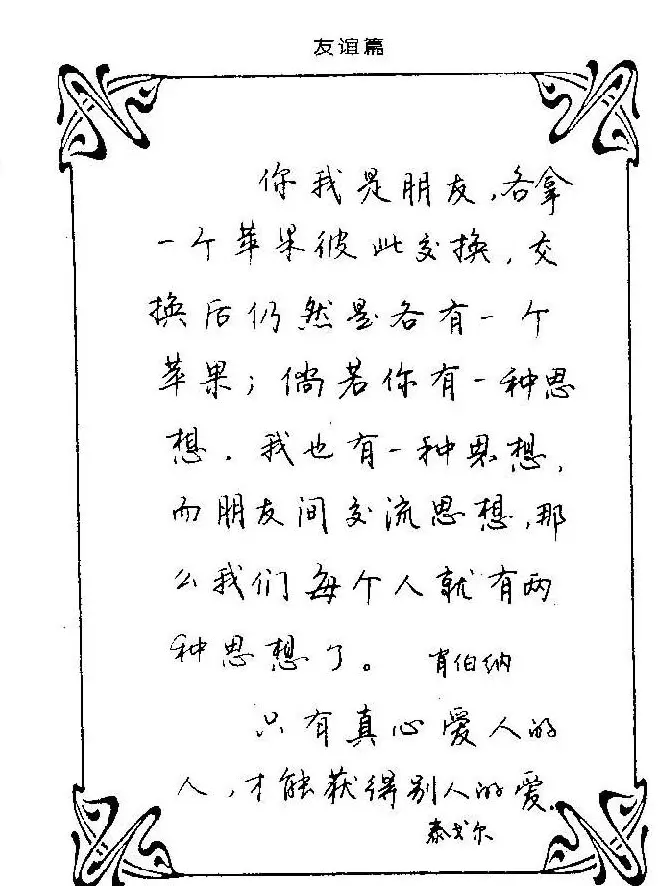 友谊篇
你我是朋友，各拿
一个苹果彼此交换，交
换后仍然是各有一个
苹果；倘若你有一种思
想，我也有一种思想，
而朋友间交流思想，那
么我们每个人就有两
种思想了。 肖伯纳
只有真心爱人的
人，才能获得别人的爱．
泰戈尔